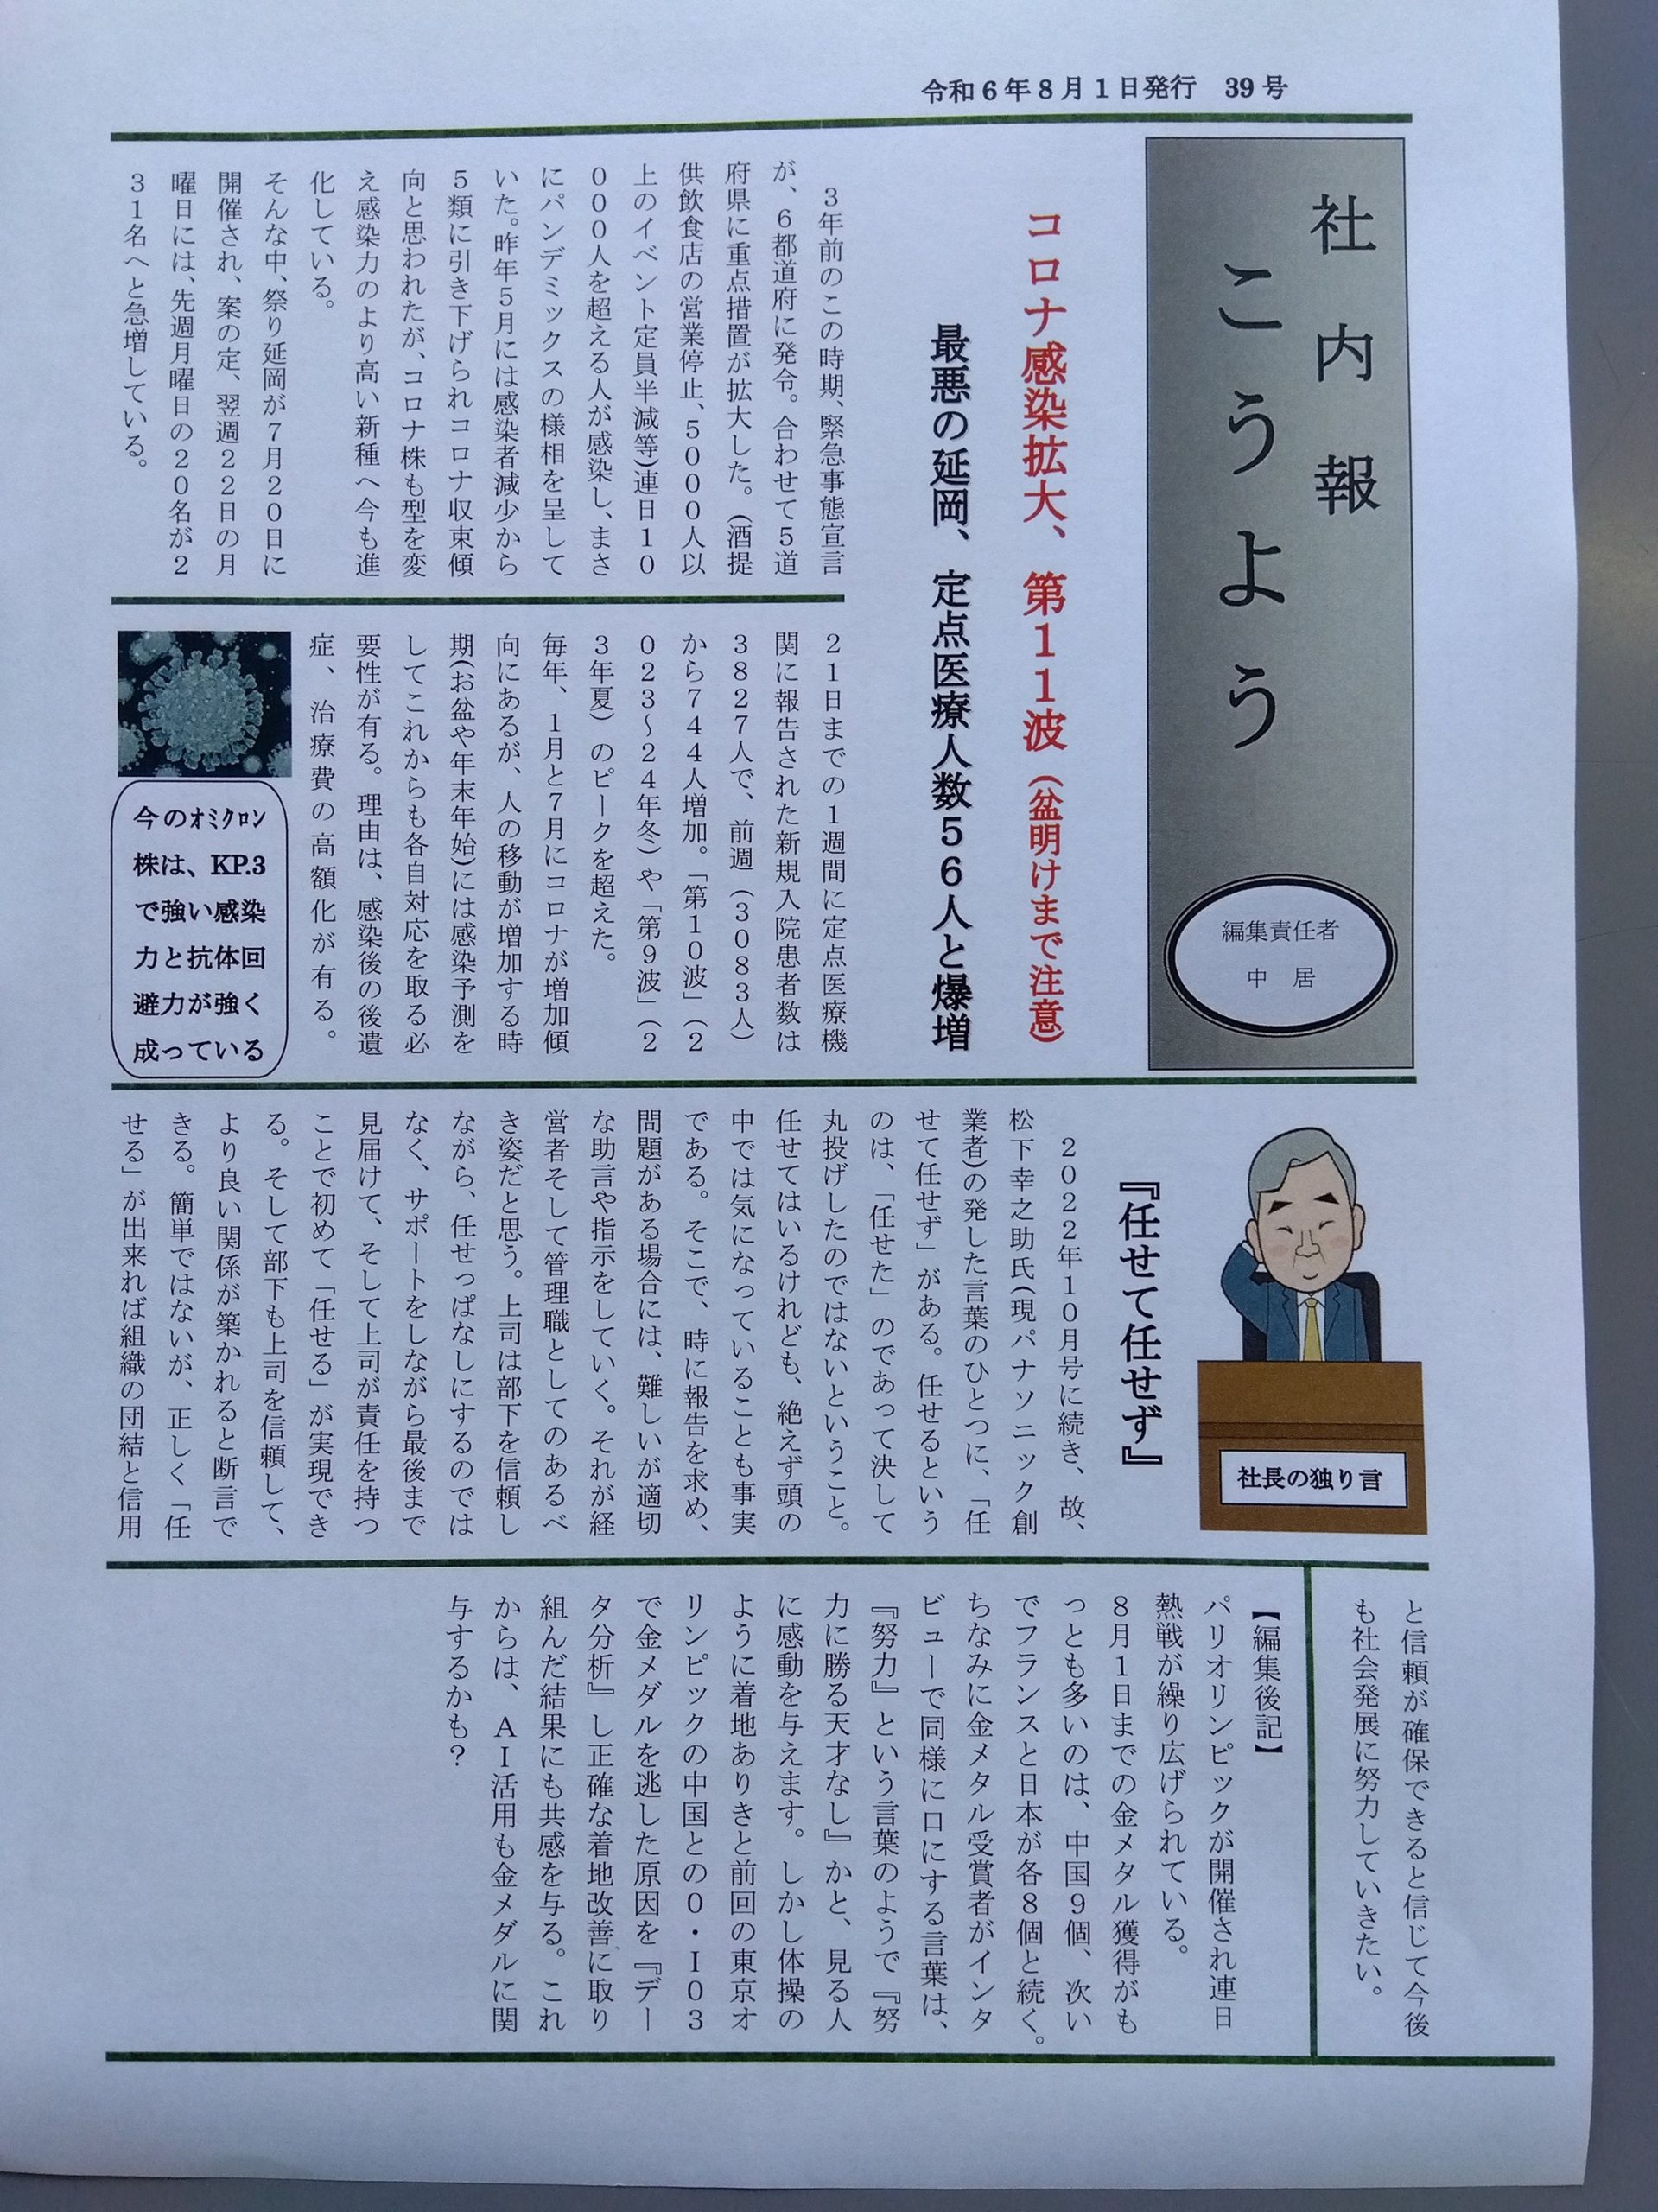 令和6年8月1日発行　39号
社内報
こうよう
編集責任者
中　居
コロナ感染拡大、第11波（盆明けまで注意）
最悪の延岡、定点医療人数56人と爆増
３年前のこの時期、緊急事態宣言
が、６都道府に発令。合わせて５道
府県に重点措置が拡大した。（酒提
供飲食店の営業停止、５０００人以
上のイベント定員半減等）連日１０
０００人を超える人が感染し、まさ
にパンデミックスの様相を呈して
いた。昨年５月には感染者減少から
５類に引き下げられコロナ収束傾
向と思われたが、コロナ株も型を変
え感染力のより高い新種へ今も進
化している。
そんな中、祭り延岡が７月２０日に
開催され、案の定、翌週２２日の月
曜日には、先週月曜日の２０名が２
３１名へと急増している。
２１日までの１週間に定点医療機
関に報告された新規入院患者数は
３８２７人で、前週（３０８３人）
から７４４人増加。「第１０波」（２
０２３～２４年冬）や「第９波」（２
３年夏）のピークを超えた。
毎年、１月と７月にコロナが増加傾
向にあるが、人の移動が増加する時
期（お盆や年末年始）には感染予測を
してこれからも各自対応を取る必
要性が有る。理由は、感染後の後遺
症、治療費の高額化が有る。
今のｵﾐｸﾛﾝ
株は、KP.3
で強い感染
力と抗体回
避力が強く
成っている
社長の独り言
『任せて任せず』
２０２２年１０月号に続き、故、
松下幸之助氏（現パナソニック創
業者）の発した言葉のひとつに、「任
せて任せず」がある。任せるという
のは、「任せた」のであって決して
丸投げしたのではないということ。
任せてはいるけれども、絶えず頭の
中では気になっていることも事実
である。そこで、時に報告を求め、
問題がある場合には、難しいが適切
な助言や指示をしていく。それが経
営者そして管理職としてのあるべ
き姿だと思う。上司は部下を信頼し
ながら、任せっぱなしにするのでは
なく、サポートをしながら最後まで
見届けて、そして上司が責任を持つ
ことで初めて「任せる」が実現でき
る。そして部下も上司を信頼して、
より良い関係が築かれると断言で
きる。簡単ではないが、正しく「任
せる」が出来れば組織の団結と信用
と信頼が確保できると信じて今後
も社会発展に努力していきたい。
【編集後記】
パリオリンピックが開催され連日
熱戦が繰り広げられている。
８月１日までの金メタル獲得がも
っとも多いのは、中国９個、次い
でフランスと日本が各８個と続く。
ちなみに金メタル受賞者がインタ
ビューで同様に口にする言葉は、
『努力』という言葉のようで『努
力に勝る天才なし』かと、見る人
に感動を与えます。しかし体操の
ように着地ありきと前回の東京オ
リンピックの中国との０・Ｉ０３
で金メダルを逃した原因を『デー
タ分析』し正確な着地改善に取り
組んだ結果にも共感を与る。これ
からは、ＡＩ活用も金メダルに関
与するかも？